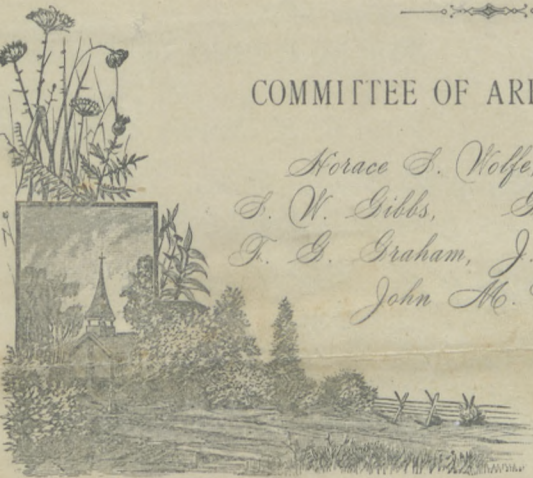 COMMITTEE OF AR
Horace S. Wolfe,
S. W. Gibbs,
F. G. Graham, J.
John M.